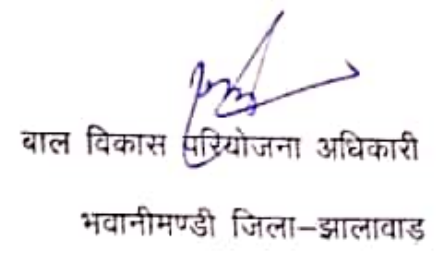 बाल विकास परियोजना अधिकारी
भवानीमण्डी जिला-झालावाड